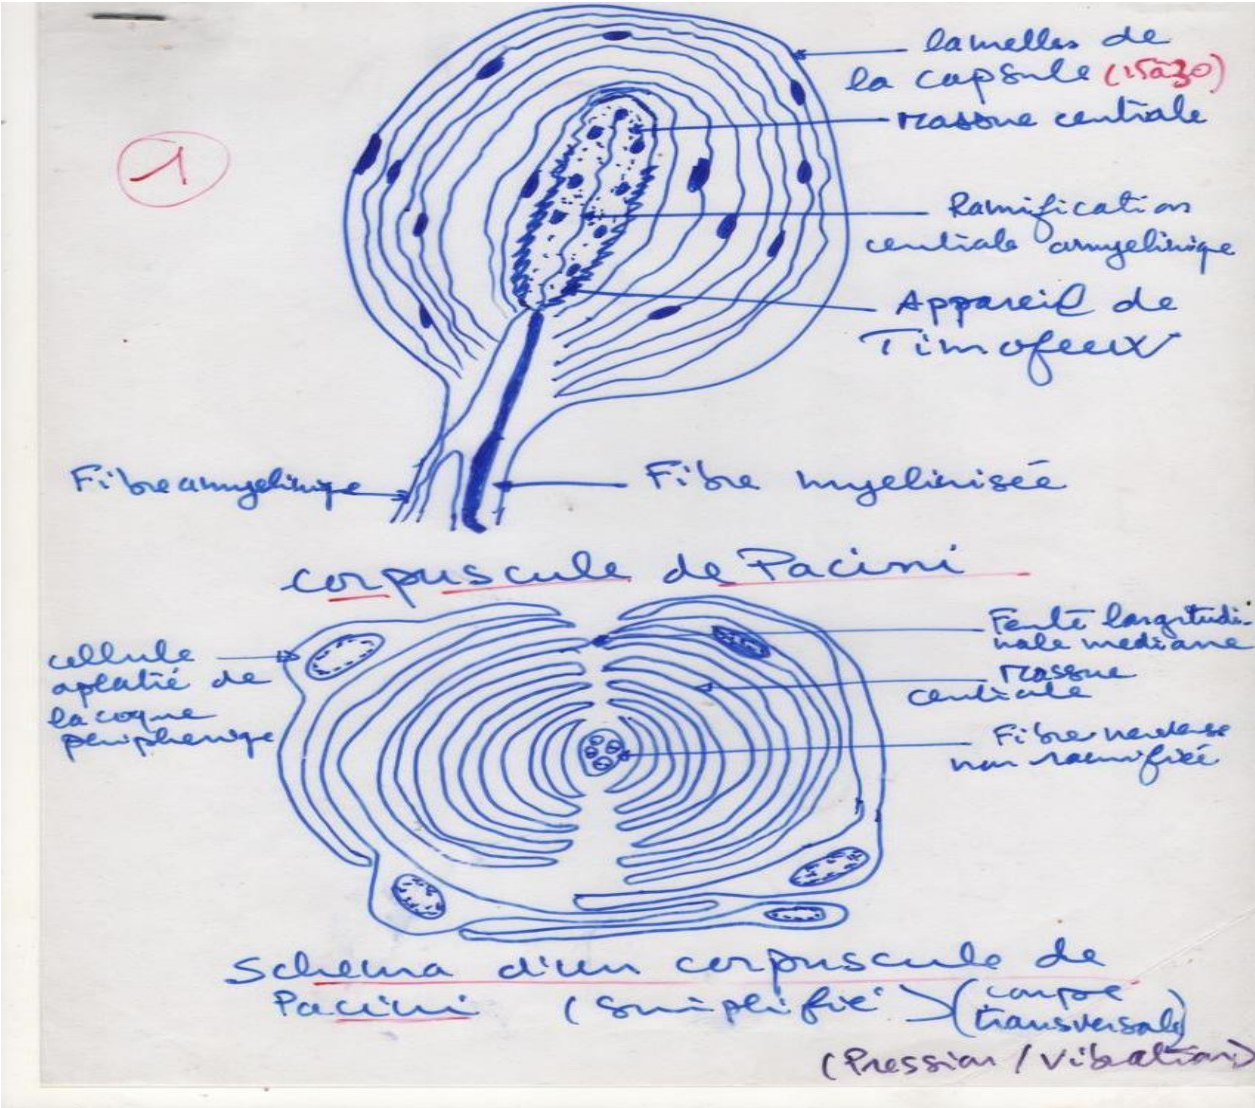 lamelles de
la capsule (15à30)
massue centrale
1
Ramification
centrale amyelinique
Appareil de
Timofeeux
Fibre amyelinique
Fibre myelinisée
corpuscule de Pacini
Fente longitudi-
nale mediane
cellule
aplatie de
la coque
peripherique
massue
centrale
Fibre nerveuse
non ramifiée
Schema d'un corpuscule de
Pacini (simplifié) (coupe
transversale)
(Pression / Vibration)